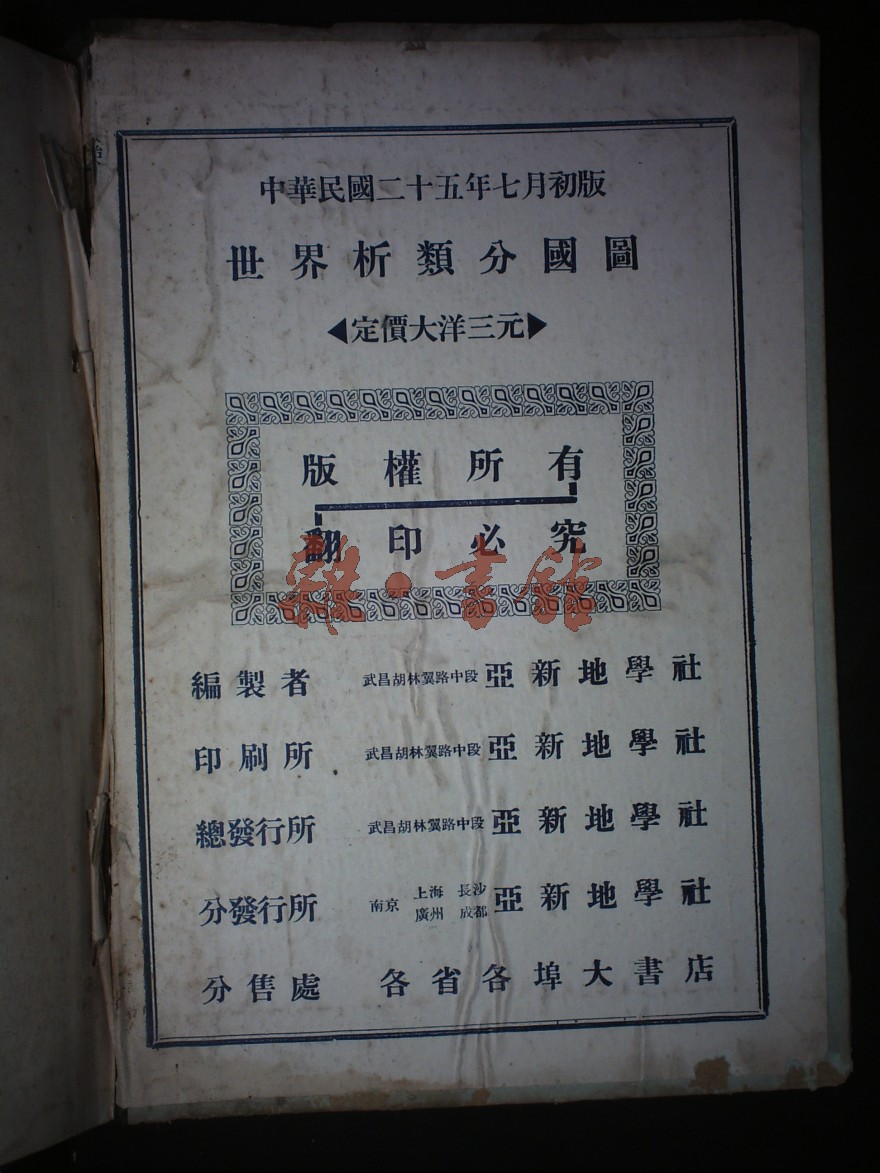 中華民國二十五年七月初版
世界析類分國圖
◀定價大洋三元▶
版權所有
翻印必究
雜·書館
編製者 武昌胡林翼路中段 亞新地學社
印刷所 武昌胡林翼路中段 亞新地學社
總發行所 武昌胡林翼路中段 亞新地學社
分發行所 南京 上海 長沙 廣州 成都 亞新地學社
分售處 各省各埠大書店